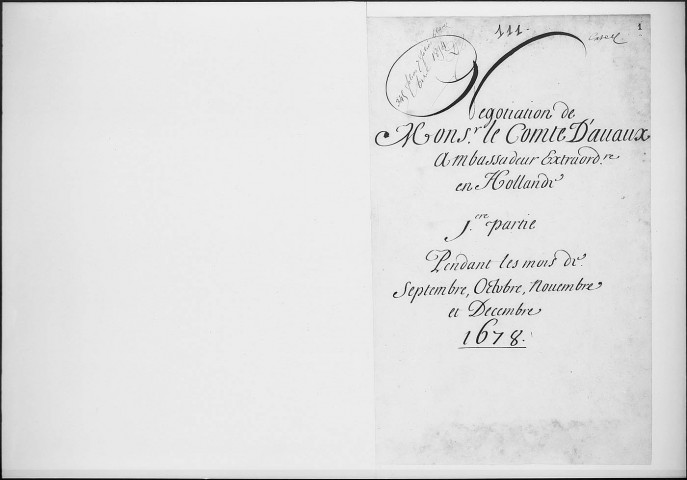 111.
1
Negotiation de
Mons.r le Comte D'auaux
Ambassadeur Extraord.re
en Hollande
1.ere partie
Pendant les mois de
Septembre, Octobre, Nouembre
et Decembre
1678.